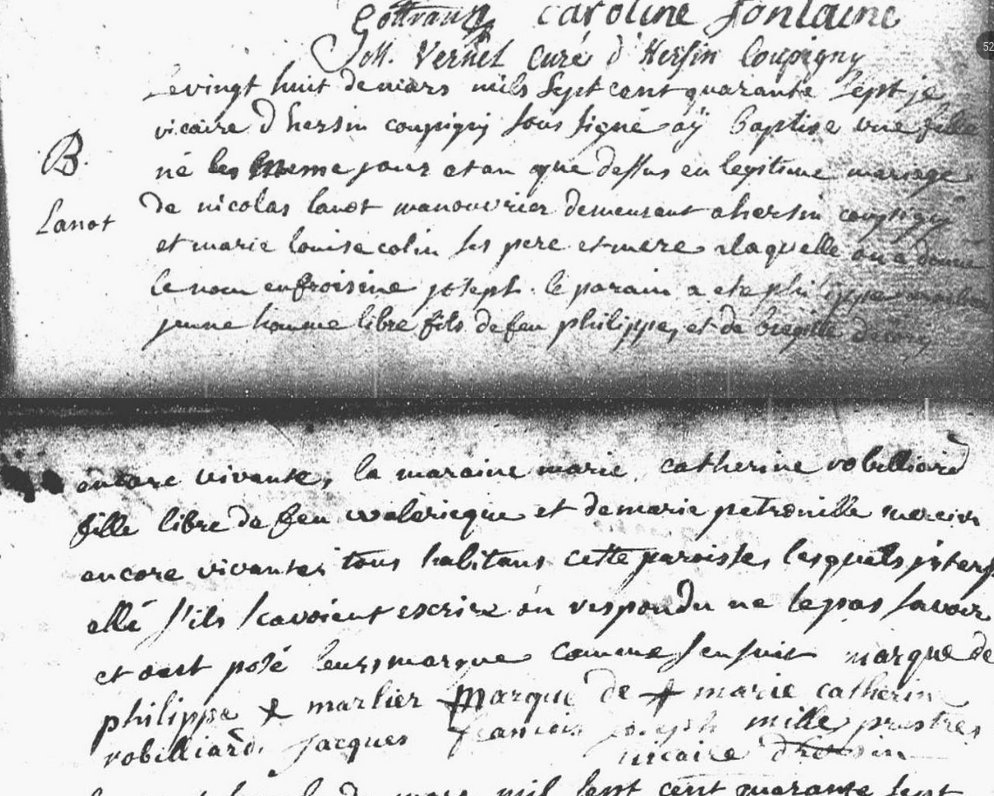 Gottrauy caroline fontaine
Jos. Vernel curé d'Hersin Coupigny
Levingt huit demars mils Sept cent quarante Sept je
vicaire d hersin coupigny sous signé aÿ Baptise une fille
B
né les meme jour et an que dessus en legitime mariage
Lanot
de nicolas lanot manouvrier demeurant ahersin coupigny
et marie louise colin ses pere et mere alaquelle on a donné
le nom enfroisine joseph. le parain a ete philippe
jeune homme libre fils defeu philippe, et de
encore vivante, la maraine marie catherine robilliard
fille libre de feu walericque et demarie petronille mercier
encore vivantes tous habitans cette paroisse lesquels interp
ellé s'ils scavoient escrire on respondu ne lepas savoir
et ont posé leurs marque comme sensuit marque de
philippe marlier marque de marie catherin
robilliard. jacques francois joseph mille prestres
vicaire
de mars mil sept cent quarante sept
52